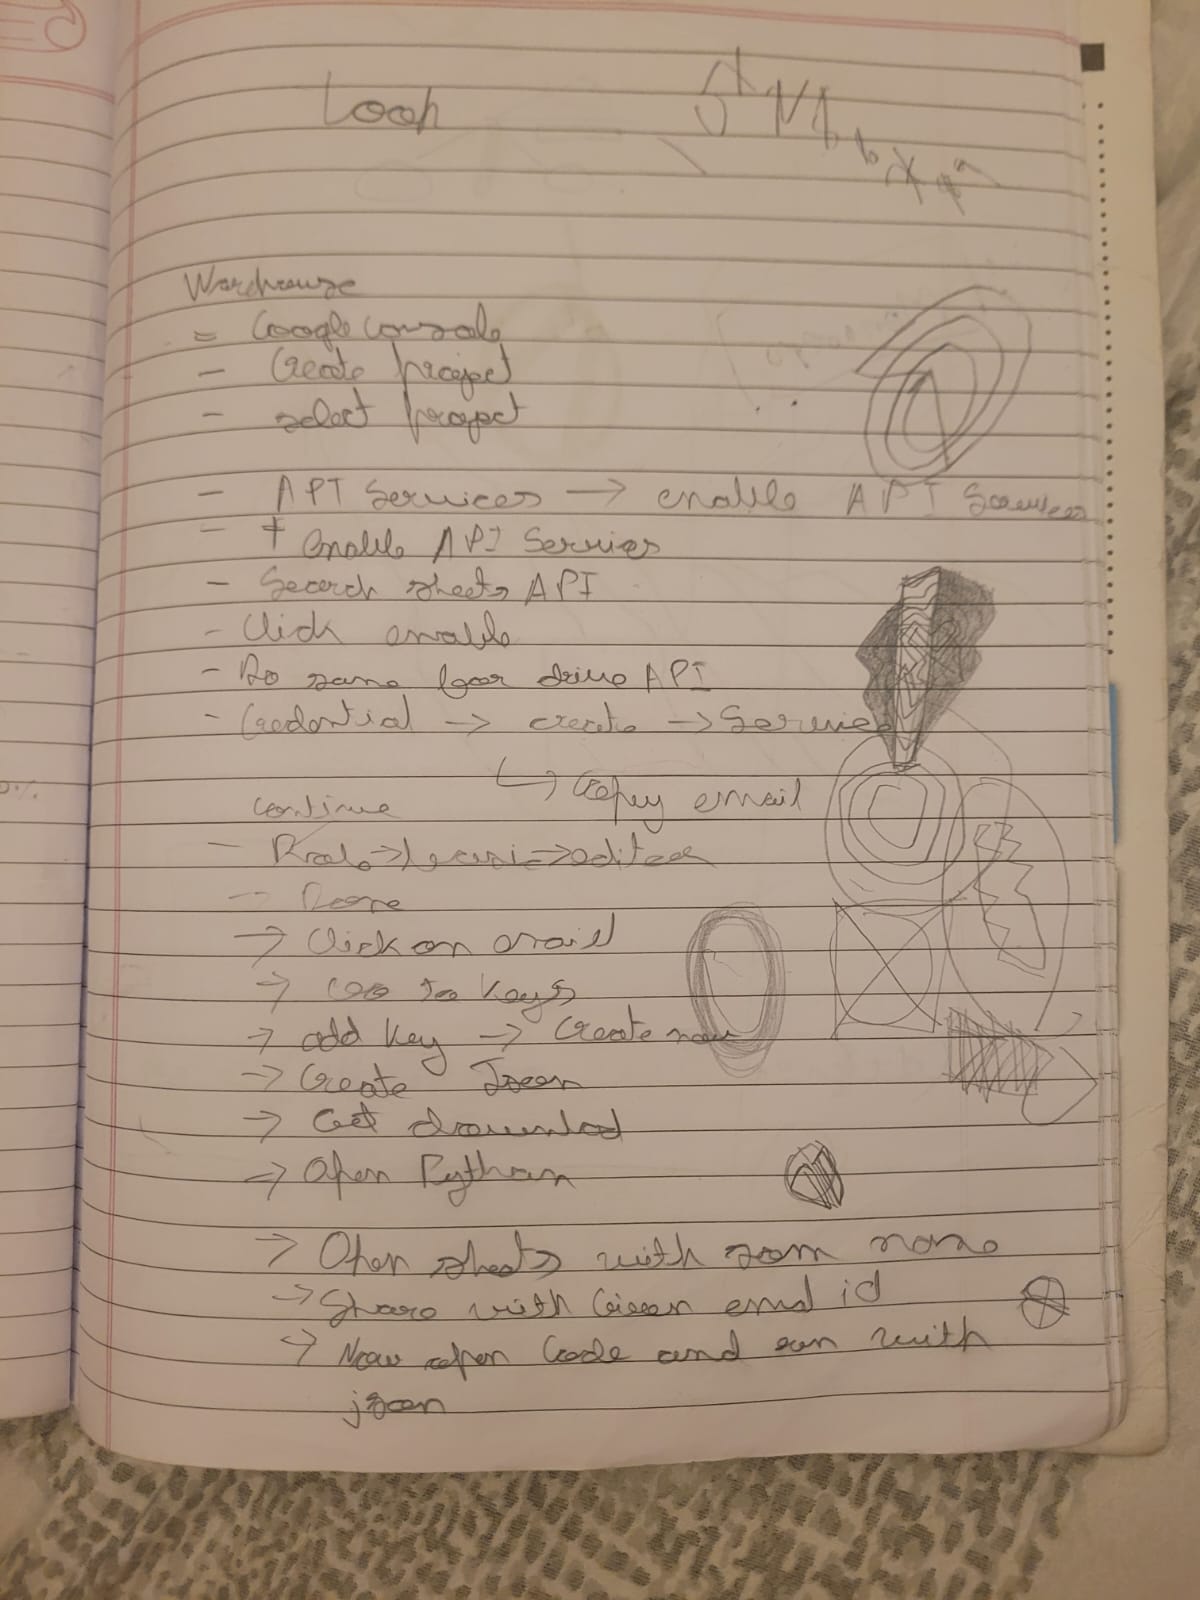 Looh
Warehouse
= Google console
- Create project
- select project
- API Services → enable API Services
- + enable API Services
- Search sheets API
- Click enable
- Do same for drive API
- Credential → create → Service
↳ Copy email
continue
- Role → → editor
- Done
→ Click on email
→ Go to Keys
→ add key → Create new
→ Create Json
→ Get download
→ Open Python
→ Open sheets with som name
→ Share with Given email id
→ Now open Code and run with
json